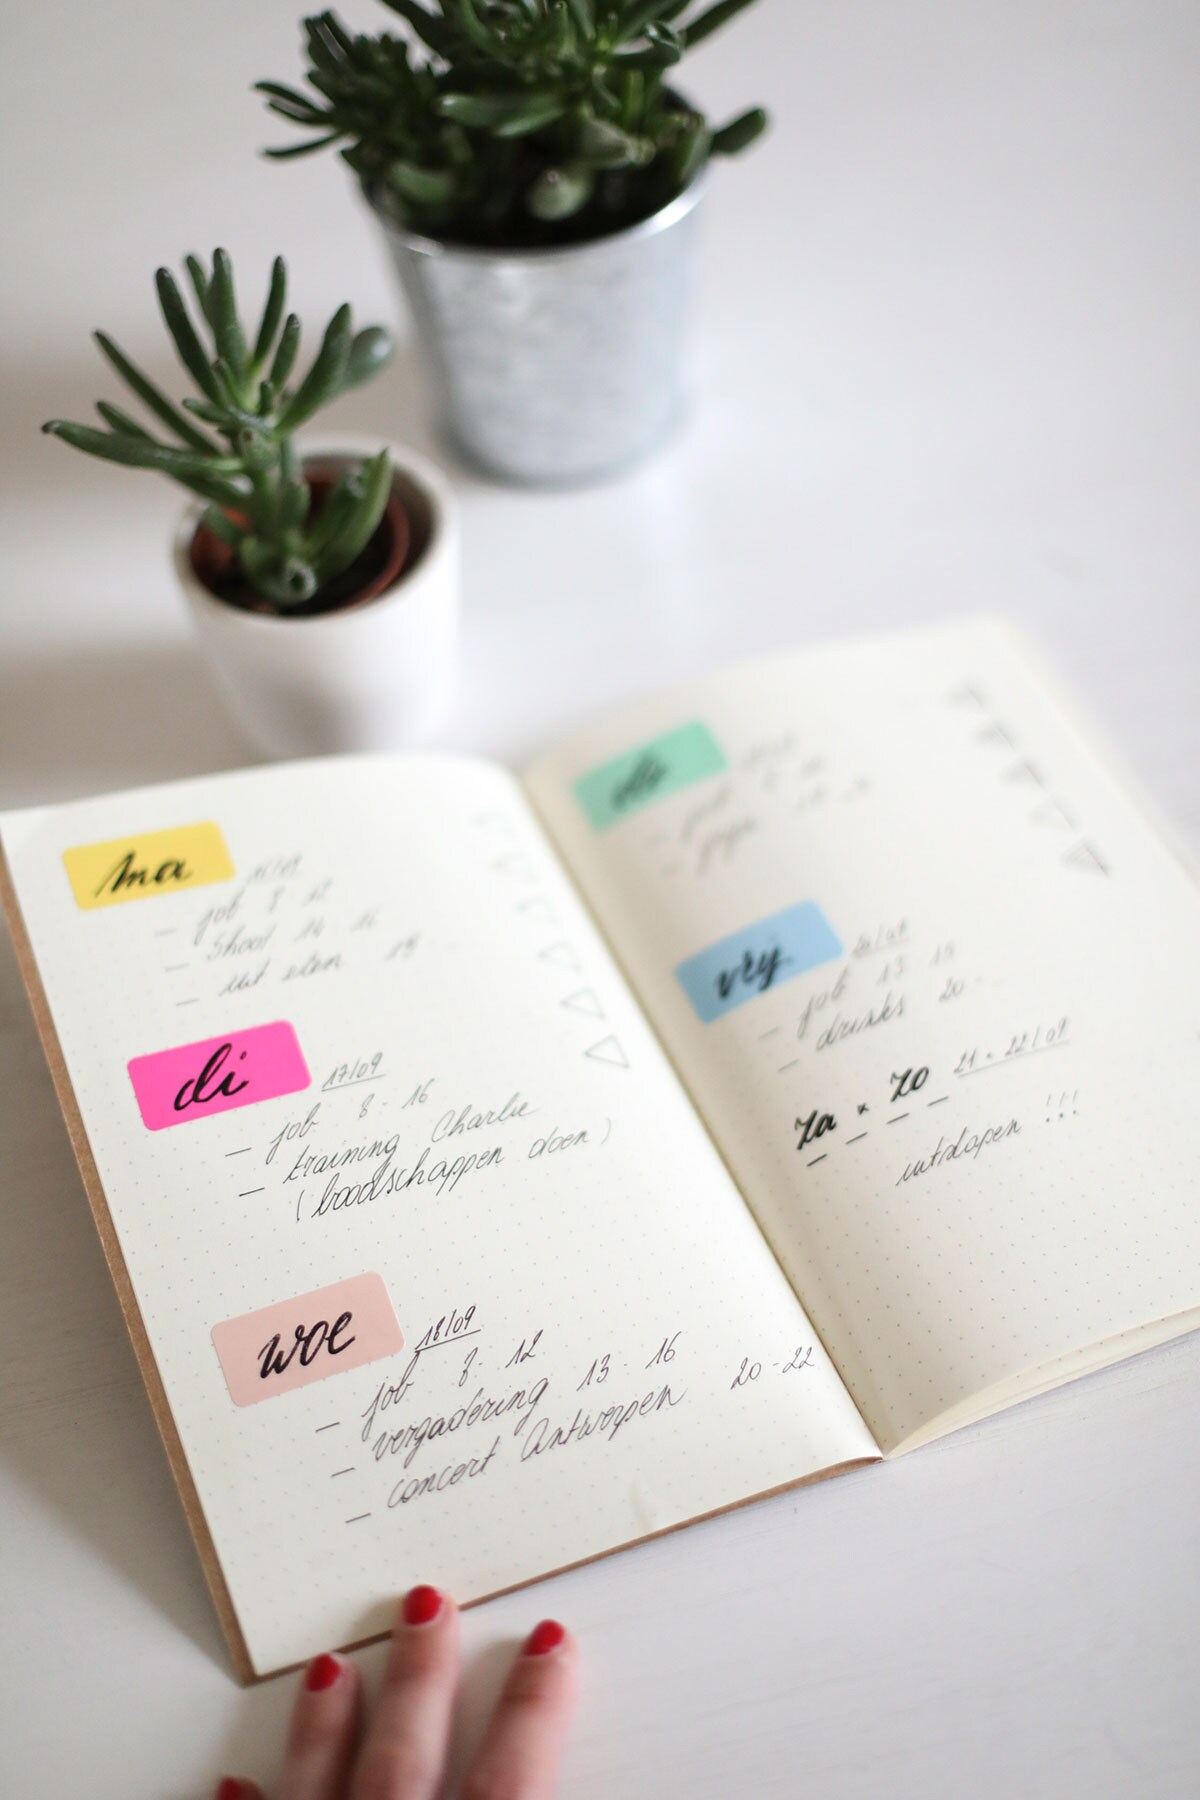 ma 16/09
– job 8-12
– shoot 14 - 16
– uit eten 18
di 17/09
– job 8-16
– training Charlie
(boodschappen doen)
woe 18/09
– job 8-12
– vergadering 13-16
– concert Antwerpen 20-22
do
– job
– yoga
vrij 20/09
– job 13 18
– drinks 20-
za × zo 21 × 22/09
uitslapen !!!